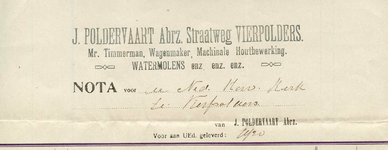 J. POLDERVAART Abrz. Straatweg VIERPOLDERS.
Mr. Timmerman, Wagenmaker, Machinale Houtbewerking.
WATERMOLENS enz. enz. enz.
NOTA voor u Ned. Herv. Kerk
te Vierpolders
van J. POLDERVAART Abrz.
Voor aan UEd. geleverd: